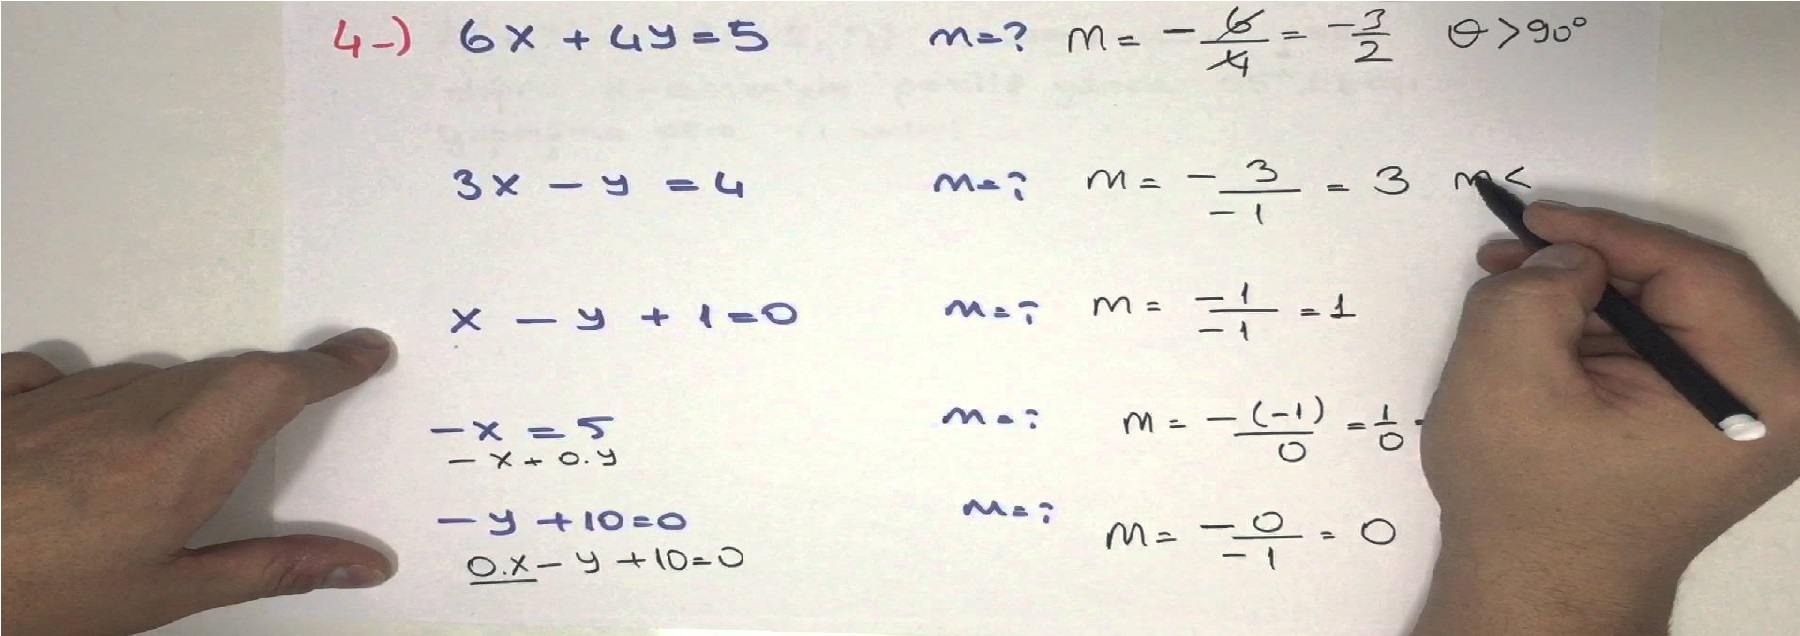 4-) 6x + 4y = 5 m=? m = - 6/4 = - 3/2 θ > 90°
3x - y = 4 m=? m = - 3/-1 = 3 m <
x - y + 1 = 0 m=? m = -1/-1 = 1
-x = 5 m=? m = -(-1)/0 = 1/0
-x + 0.y
-y + 10 = 0 m=? m = -0/-1 = 0
0.x - y + 10 = 0